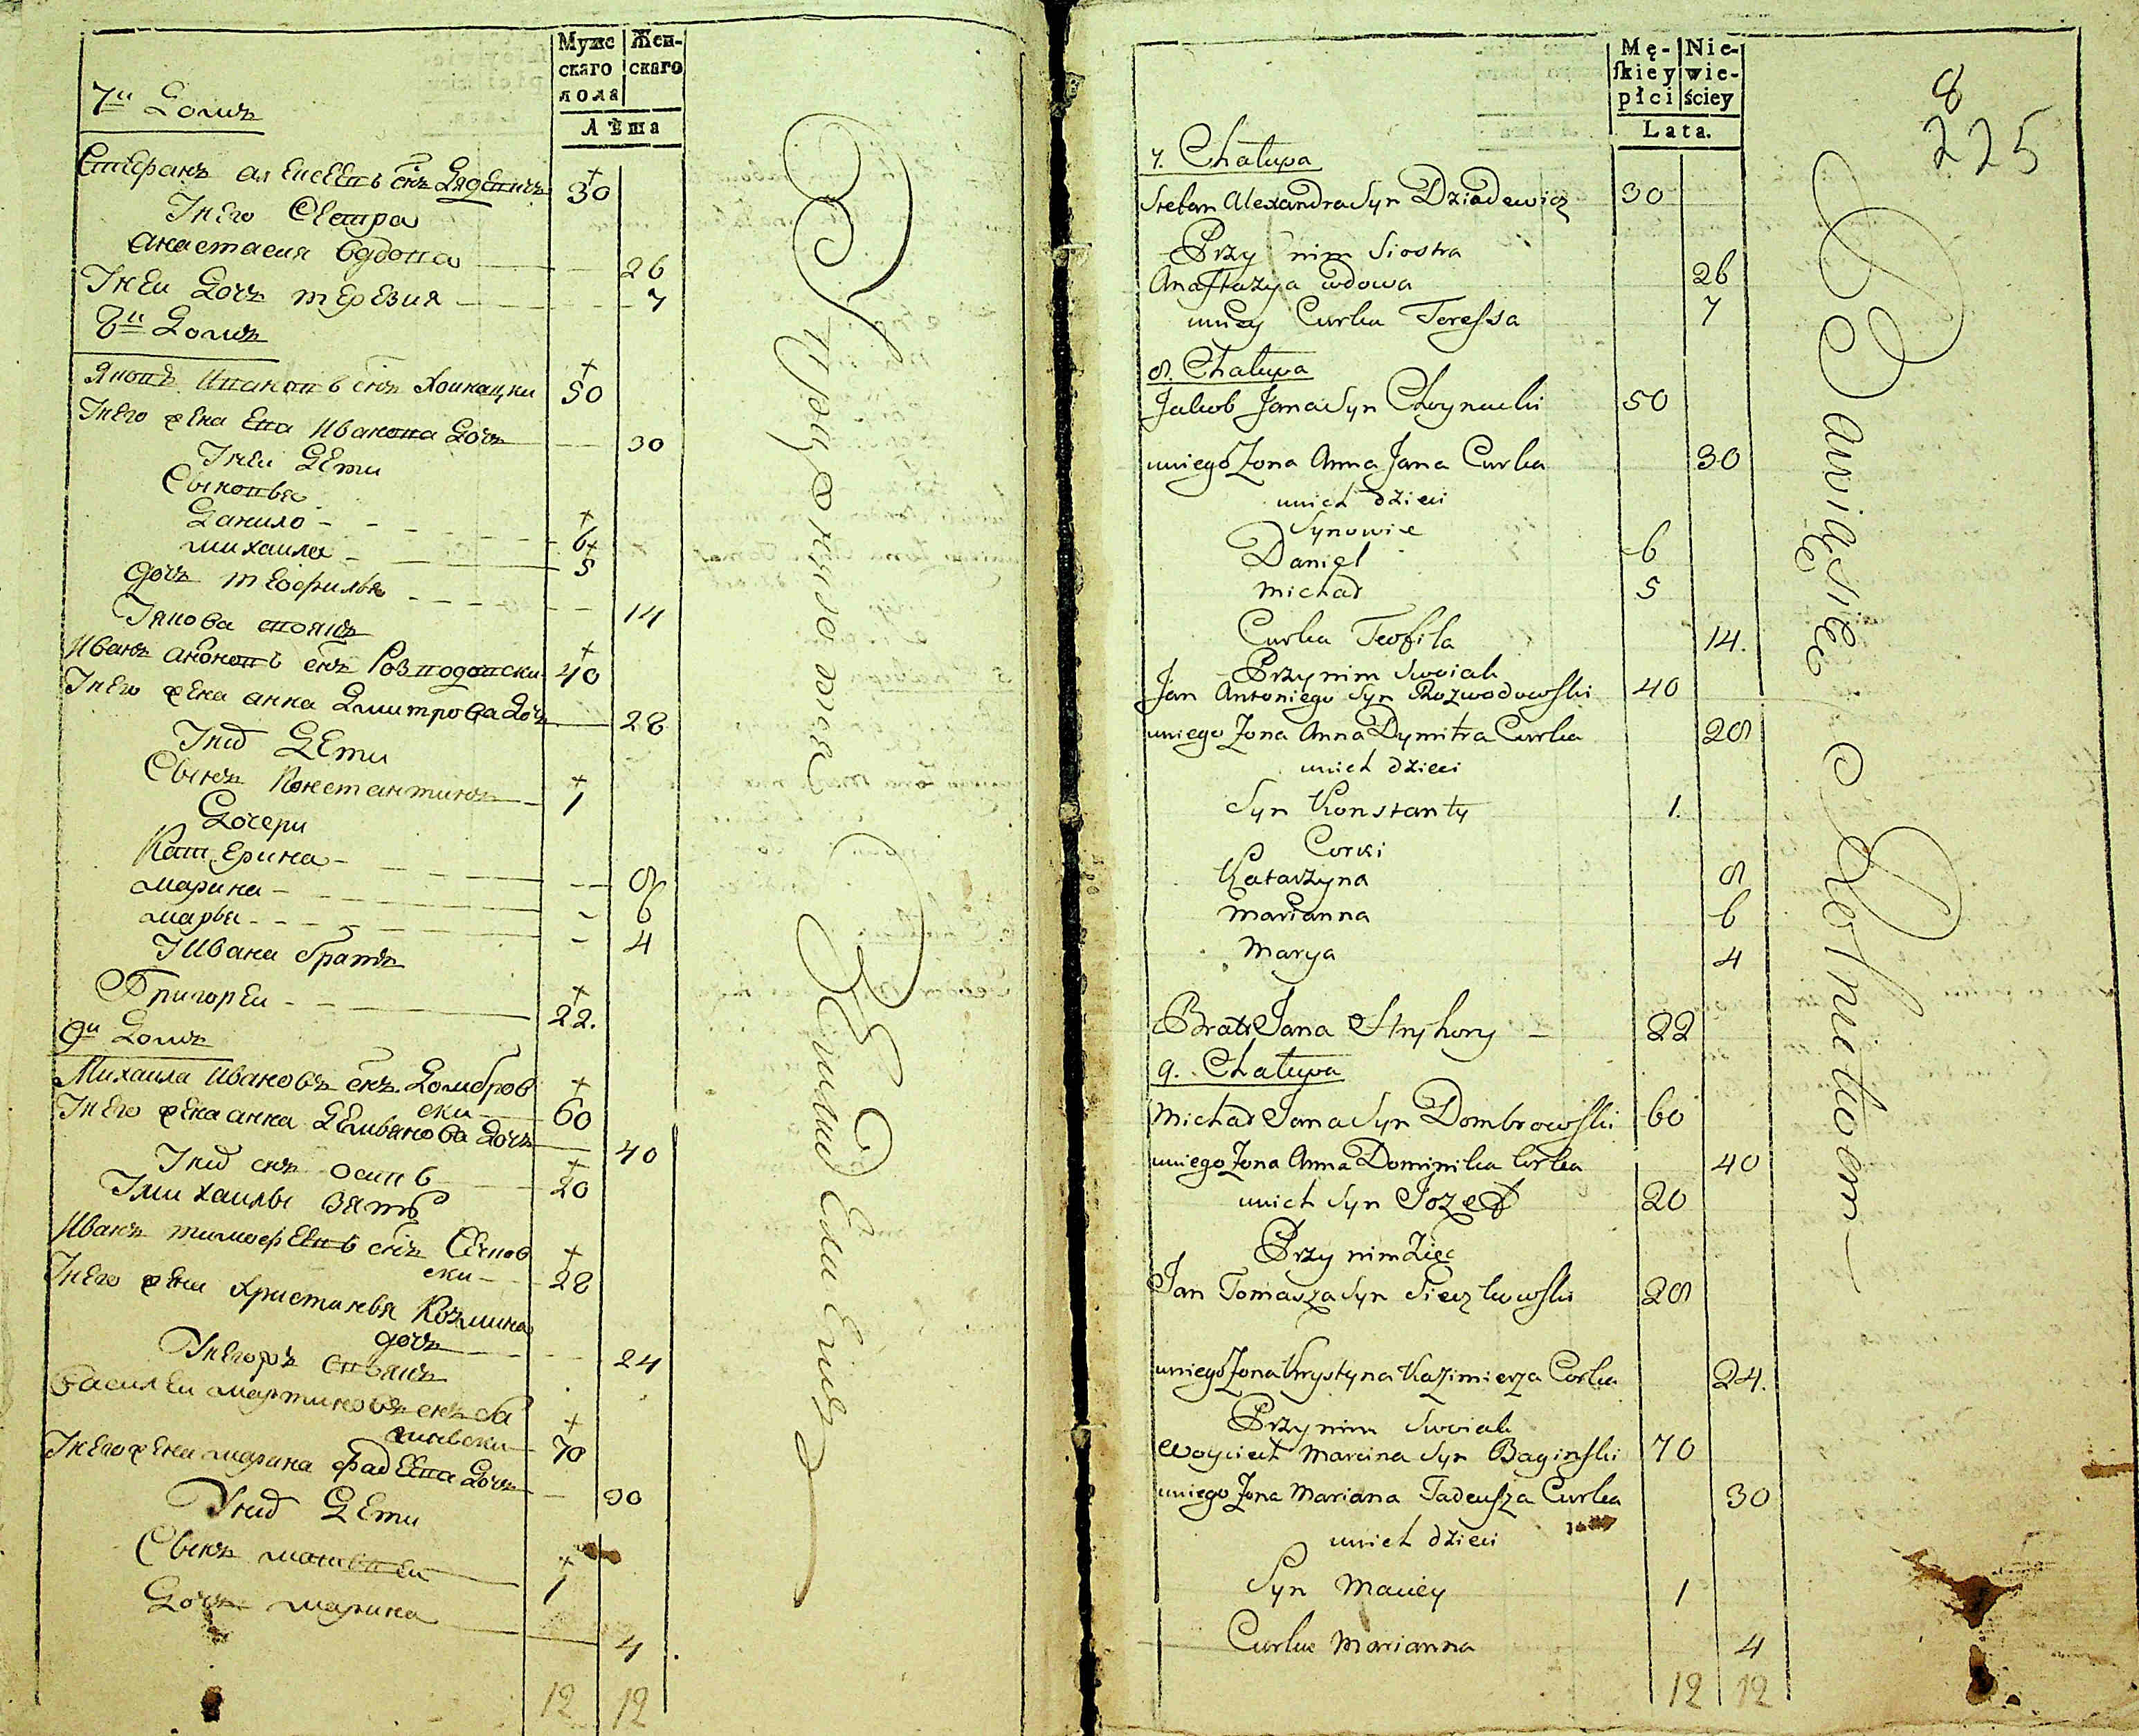 Муже Жен-
скаго скаго
пола
Лѣта
7й Домъ
Стефанъ Алексеевъ снъ Дядевичъ 30
Унего Сестра
анастасия вдова 26
Унеи Дочъ терезия 7
8й Домъ
Яковъ Ивановъ снъ Хоинацки 50
Унего жена Ева Иванова Дочъ 30
Унеи Дети
Сыновья
Данило 6
михаила 5
дочъ теофилья 14
Иванъ антоновъ снъ Розводовски 40
Унего жена анна Дмитрова Дочъ 28
Унихъ Дети
Сынъ Константинъ 1
Дочери
Катерина 8
марина 6
марья 4
У Ивана братъ
Григореи 22.
9й Домъ
Михаила Ивановъ снъ Домбров
ски 60
Унего жена анна Демьянова Дочъ 40
Унихъ снъ осипъ 20
У михаилы зять
Иванъ тимофеевъ снъ
ски 28
Унего жена христинья Козмина
дочъ 24
Василеи мартиновъ снъ Ба
гинвски 70
Унего жена марина фадеева Дочъ 30
Унихъ Дети
Сынъ матвеи 1
Дочъ марина 4
12 12
Mę- Nie-
ſkiey wie-
płci ściey
Lata.
8
225
7. Chałupa
Stefan Alexandra Syn Dziadewicz 30
Przy nim Siostra
Anastazya wdowa 26
uniey Curka Teressa 7
8. Chałupa
Jakob Jana Syn Choynacki 50
uniego Zona Anna Jana Curka 30
unich dzieci
Synowie
Daniel 6
Michał 5
Curka Teofila 14.
Przy nim Swoiak
Jan Antoniego Syn Rozwodowski 40
uniego Zona Anna Dymitra Curka 28
unich dzieci
Syn Konstanty 1.
Corki
Katarzyna 8
Marianna 6
Marya 4
Brat Jana Hryhory 22
9. Chałupa
Michał Jana Syn Dombrowski 60
uniego Zona Anna Dominika Corka 40
unich Syn Jozef 20
Przy nim Zięc
Jan Tomasza Syn 28
uniego Zona Krystyna Kazimierza Corka 24.
Przy nim Swoiak
Woyciech Marcina Syn Baginski 70
uniego Zona Mariana Tadeusza Curka 30
unich dzieci
Syn Maciey 1
Curka Marianna 4
12 12